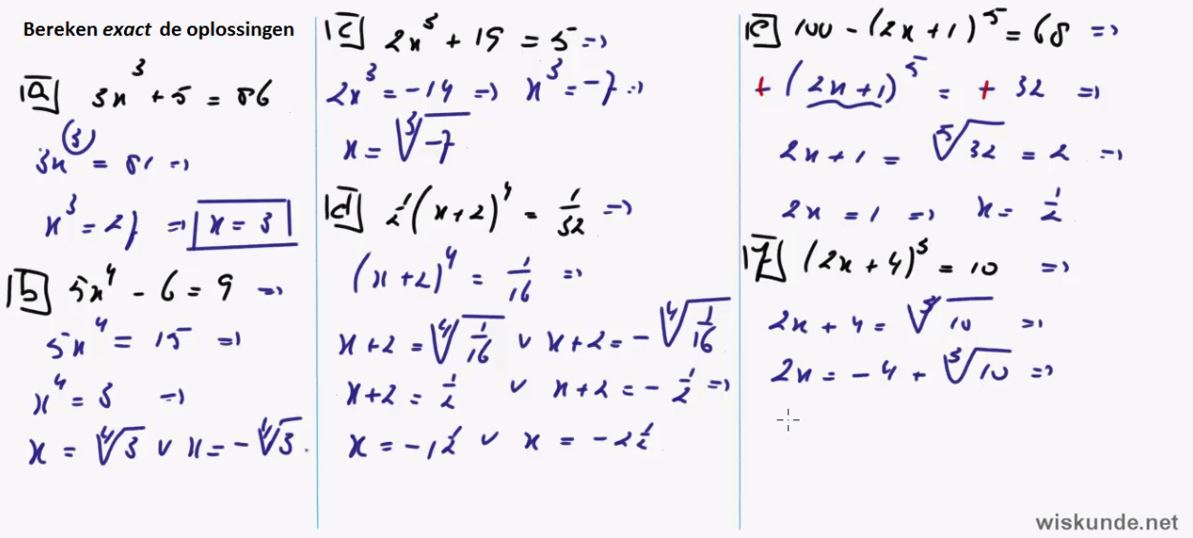 Bereken exact de oplossingen
a 3x³ + 5 = 86
3x³ = 81 ⇒
x³ = 27 ⇒ x = 3
b 5x⁴ - 6 = 9 ⇒
5x⁴ = 15 ⇒
x⁴ = 3 ⇒
x = ⁴√3 ∨ x = -⁴√3.
c 2x³ + 19 = 5 ⇒
2x³ = -14 ⇒ x³ = -7 ⇒
x = ³√-7
d ½(x+2)⁴ = 1/32 ⇒
(x+2)⁴ = 1/16 ⇒
x+2 = ⁴√(1/16) ∨ x+2 = -⁴√(1/16)
x+2 = ½ ∨ x+2 = -½ ⇒
x = -1½ ∨ x = -2½
e 100 - (2x+1)⁵ = 68 ⇒
+ (2x+1)⁵ = + 32 ⇒
2x+1 = ⁵√32 = 2 ⇒
2x = 1 ⇒ x = ½
f (2x+4)³ = 10 ⇒
2x + 4 = ³√10 ⇒
2x = -4 + ³√10 ⇒
wiskunde.net